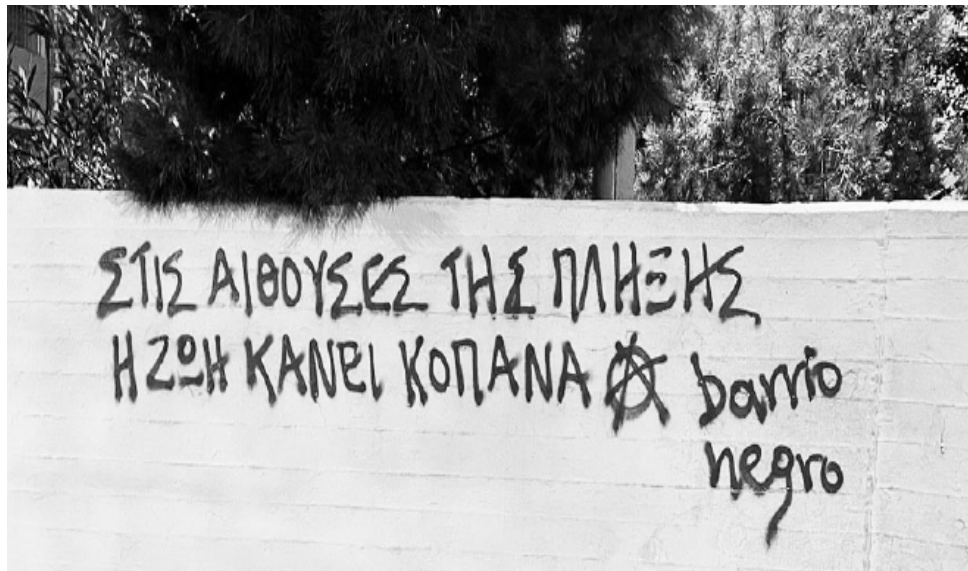 ΣΤΙΣ ΑΙΘΟΥΣΕΣ ΤΗΣ ΠΛΗΞΗΣ
Η ΖΩΗ ΚΑΝΕΙ ΚΟΠΑΝΑ Ⓐ barrio
negro